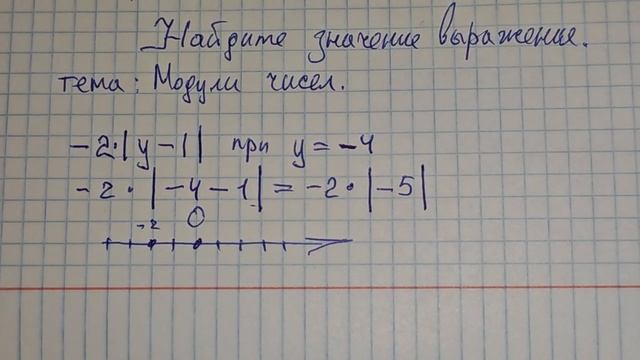 Найдите значение выражения.
тема: Модули чисел.
-2·|y-1| при y=-4
-2·|-4-1|=-2·|-5|
-2 0